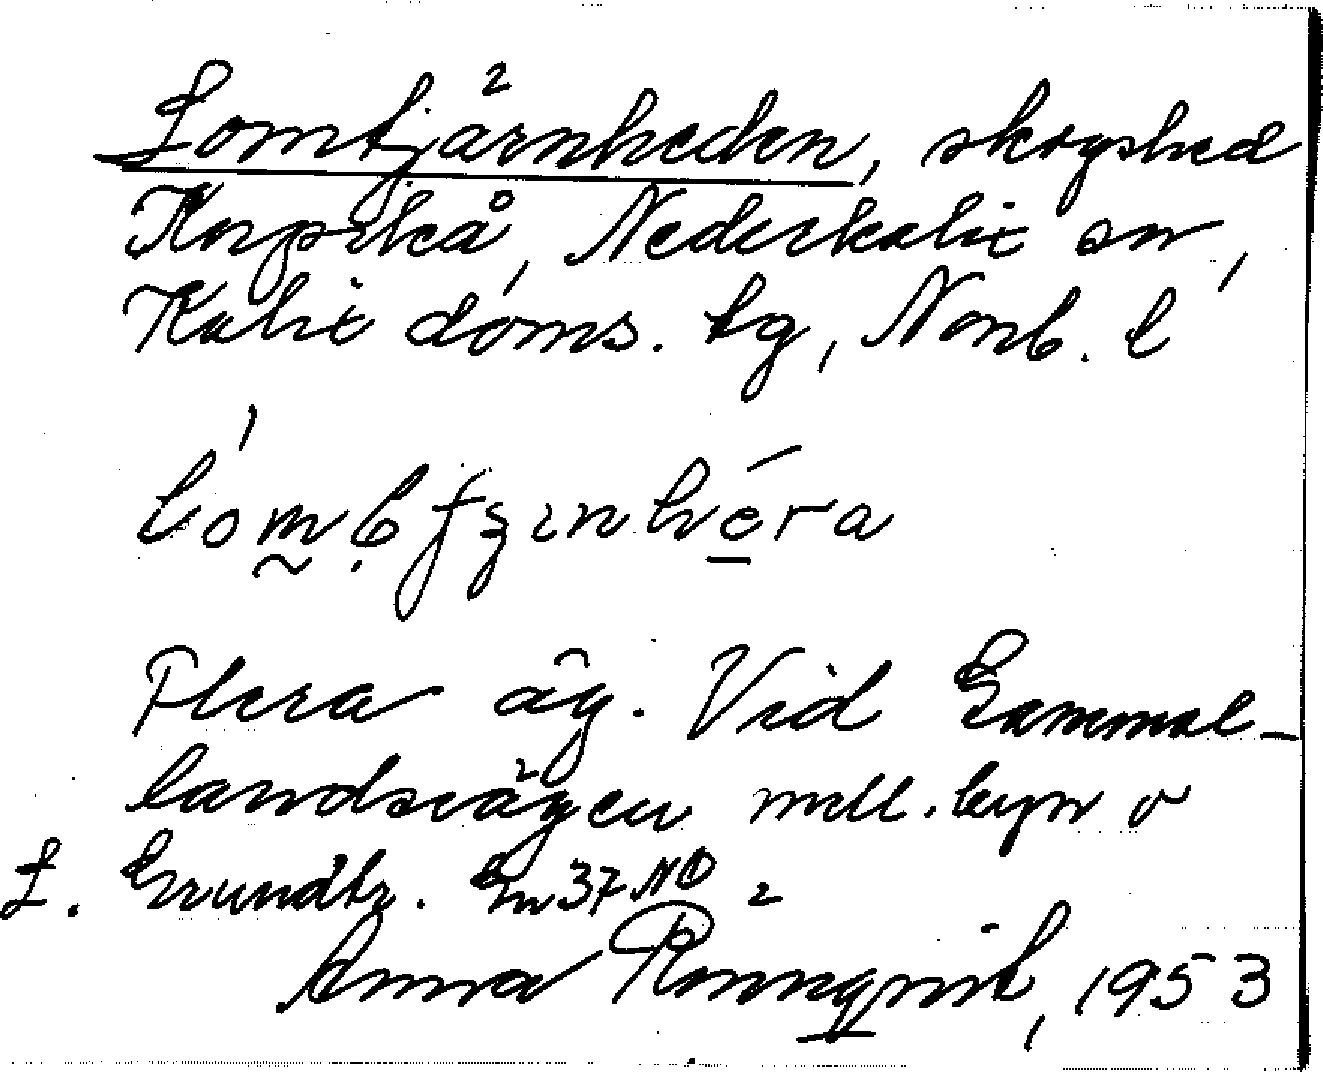 Lomtjärnheden, skogshed
Korpikå, Nederkalix sn,
Kalix doms. tg, Norrb. l
Flera äg. Vid Gammal-
landsvägen mell. byn o
L. Grundtr. Gm 37 NO
Anna Rönnqvist, 1953